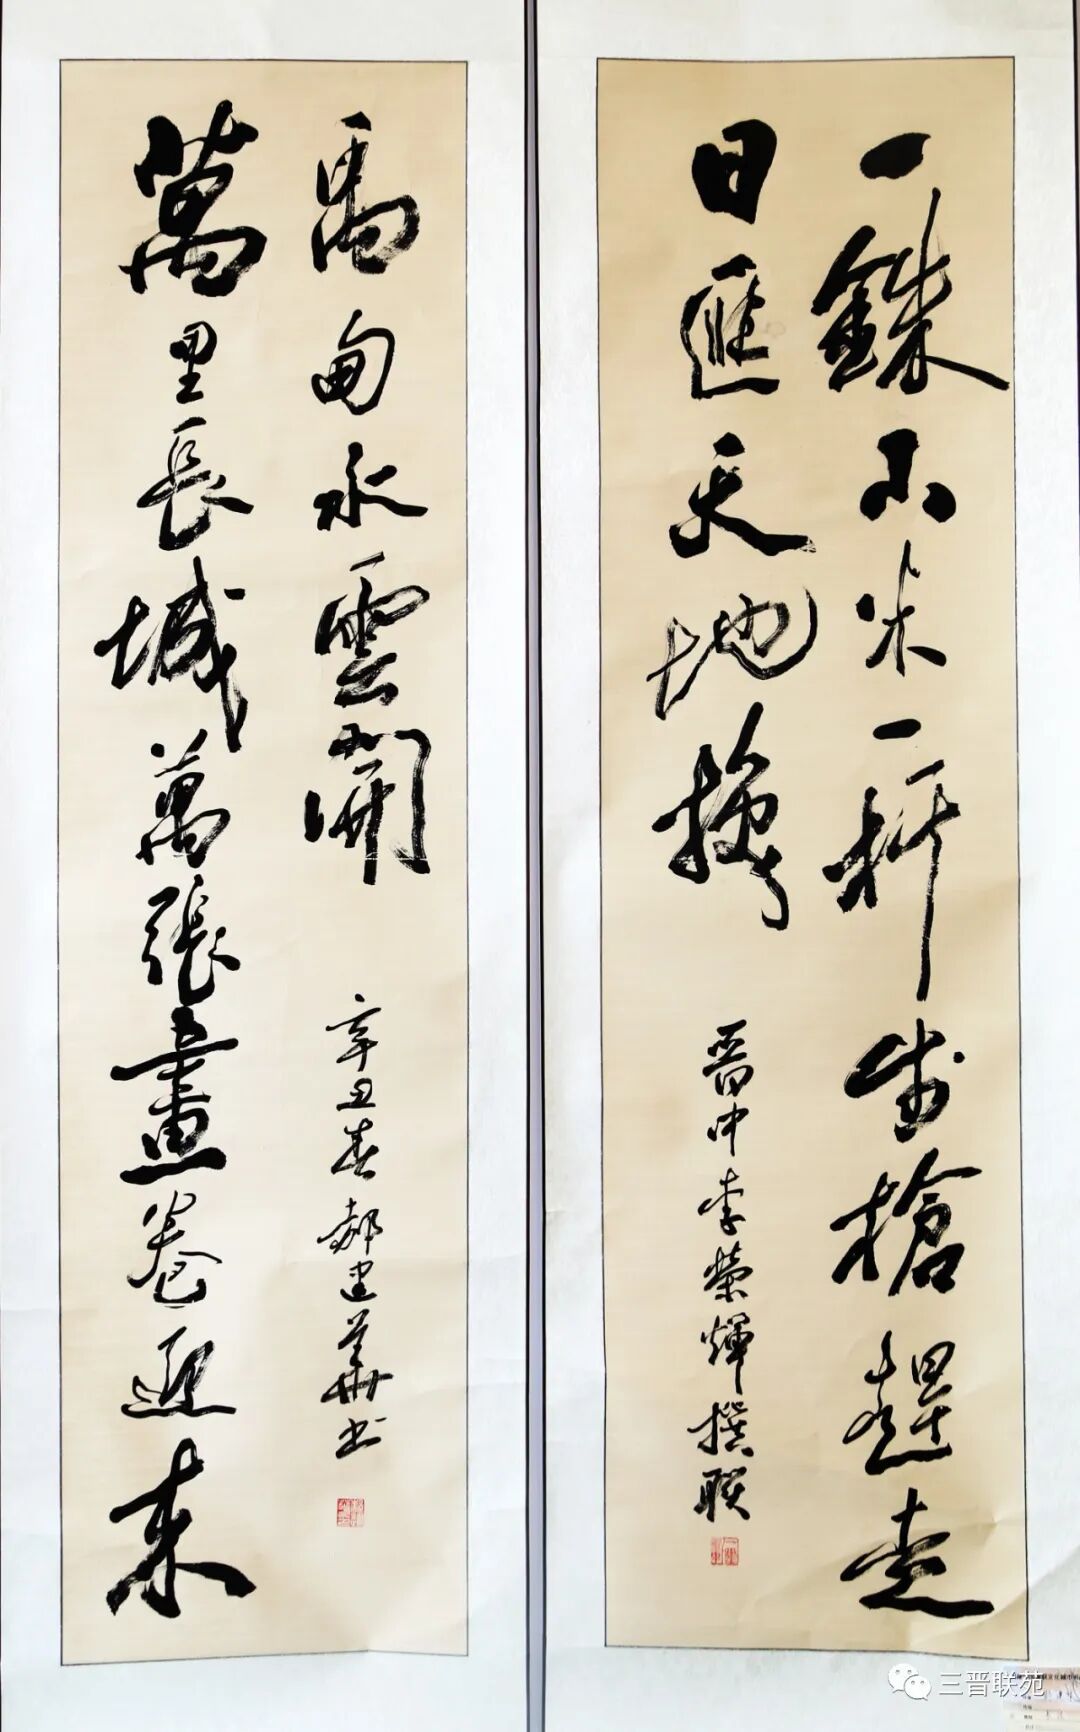 一銖小米一杆步槍趕走
日匪天地換
晋中李荣輝撰联
萬里長城萬張畫卷迎来
禹甸永雲開
辛丑春郝建華书
三晋联苑